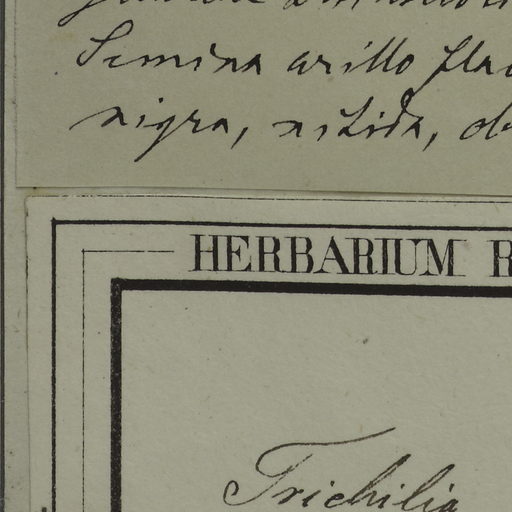 Semina arillo
nigra, nitida,
HERBARIUM
Trichilia